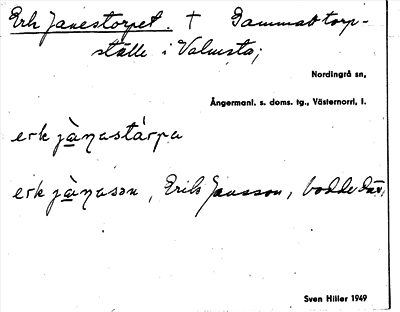 Erk Janestorpet. † Gammalt torp-
ställe i Valmsta;
Nordingrå sn,
Ångermanl. s. doms. tg., Västernorrl. l.
erk jànastàrpa
erk jànasən, Erik Jansson, bodde där.
Sven Hiller 1949